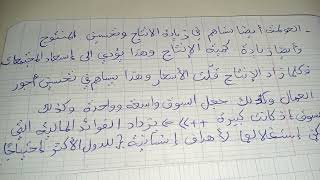 - العولمة أيضا تساهم في زيادة الإنتاج وتحسين المنتوج
وأيضا زيادة كمية الإنتاج وهذا يؤدي الى إسعاد المجتمعات
فكلما زاد الإنتاج قلّت الأسعار وهذا يساهم في تحسين أجور
العمال وكذلك جعل السوق واسعة وواحدة وكذلك
سوق إذ كانت كبيرة ++ => تزداد الفوائد المالية التي
إستغلالها لأهداف إنسانية { للدول الأكثر إحتياجا